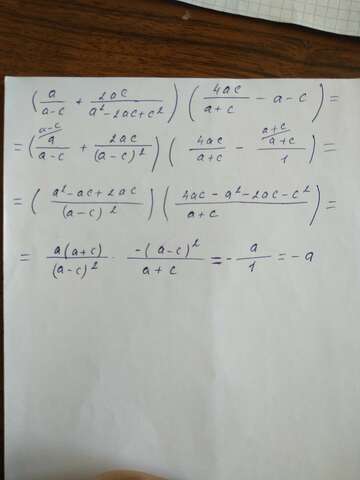 (a/(a-c) + 2ac/(a²-2ac+c²)) (4ac/(a+c) - a - c) =
= (ᵃ⁻ᶜ⁄ a/(a-c) + 2ac/(a-c)²) (4ac/(a+c) - ᵃ⁺ᶜ⁄ a+c/1) =
= ((a²-ac+2ac)/(a-c)²) ((4ac-a²-2ac-c²)/(a+c)) =
= a(a+c)/(a-c)² · -(a-c)²/(a+c) = - a/1 = -a